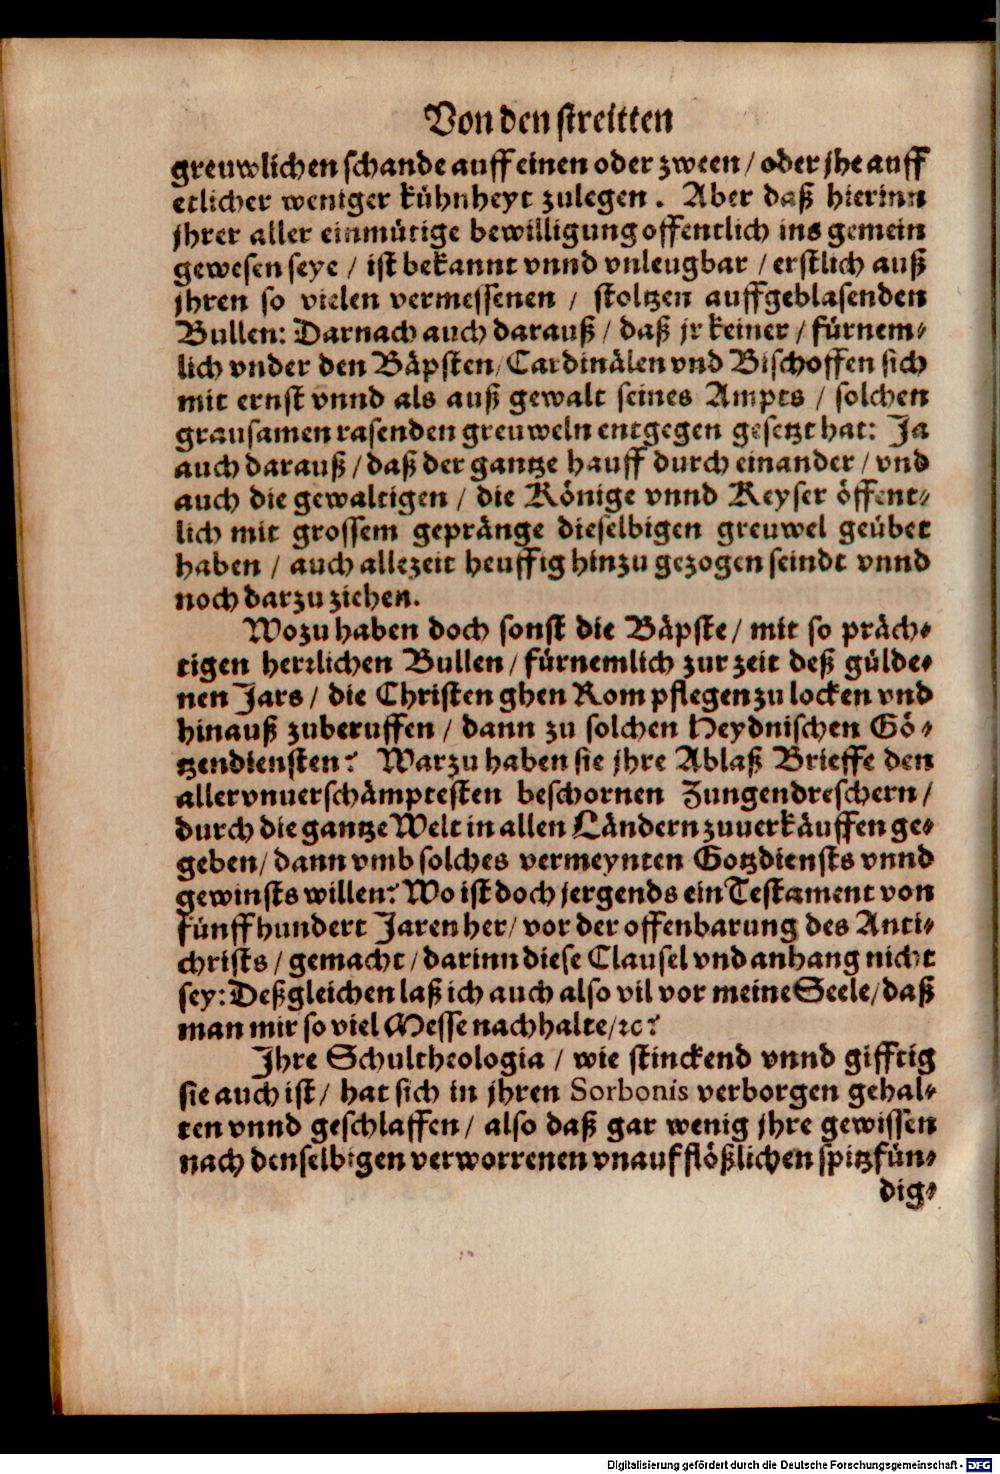 Von den streitten
greuwlichen schande auff einen oder zween / oder jhe auff
etlicher weniger kühnheyt zulegen. Aber daß hierinn
jhrer aller einmütige bewilligung offentlich ins gemein
gewesen seye / ist bekannt vnnd vnleugbar / erstlich auß
jhren so vielen vermessenen / stoltzen auffgeblasenden
Bullen: Darnach auch darauß / daß jr keiner / fürnem-
lich vnder den Bäpsten / Cardinälen vnd Bischoffen sich
mit ernst vnnd als auß gewalt seines Ampts / solchen
grausamen rasenden greuweln entgegen gesetzt hat: Ja
auch darauß / daß der gantze hauff durch einander / vnd
auch die gewaltigen / die Könige vnnd Keyser öffent-
lich mit grossem gepränge dieselbigen greuwel geübet
haben / auch allezeit heuffig hinzu gezogen seindt vnnd
noch darzu ziehen.
Wozu haben doch sonst die Bäpste / mit so präch-
tigen herrlichen Bullen / fürnemlich zur zeit deß gülde-
nen Jars / die Christen ghen Rom pflegen zu locken vnd
hinauß zuberuffen / dann zu solchen Heydnischen Gö-
tzendiensten? Warzu haben sie jhre Ablaß Brieffe den
allervnuerschämptesten beschornen Zungendreschern /
durch die gantze Welt in allen Ländern zuuerkäuffen ge-
geben / dann vmb solches vermeynten Gotzdiensts vnnd
gewinsts willen? Wo ist doch jergends ein Testament von
fünff hundert Jaren her / vor der offenbarung des Anti-
christs / gemacht / darinn diese Clausel vnd anhang nicht
sey: Deßgleichen laß ich auch also vil vor meine Seele / daß
man mir so viel Messe nachhalte / ꝛc?
Jhre Schultheologia / wie stinckend vnnd gifftig
sie auch ist / hat sich in jhren Sorbonis verborgen gehal-
ten vnnd geschlaffen / also daß gar wenig jhre gewissen
nach denselbigen verworrenen vnaufflößlichen spitzfün-
dig-
Digitalisierung gefördert durch die Deutsche Forschungsgemeinschaft - DFG